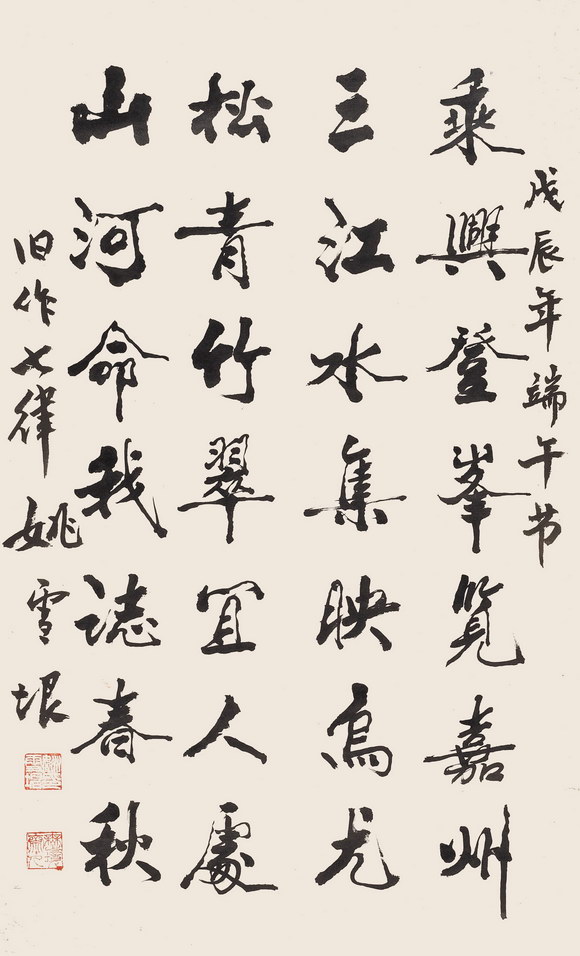 戊辰年端午节
乘興登峯覽嘉州
三江水集映烏尤
松青竹翠宜人處
山河命我誌春秋
旧作七律 姚雪垠